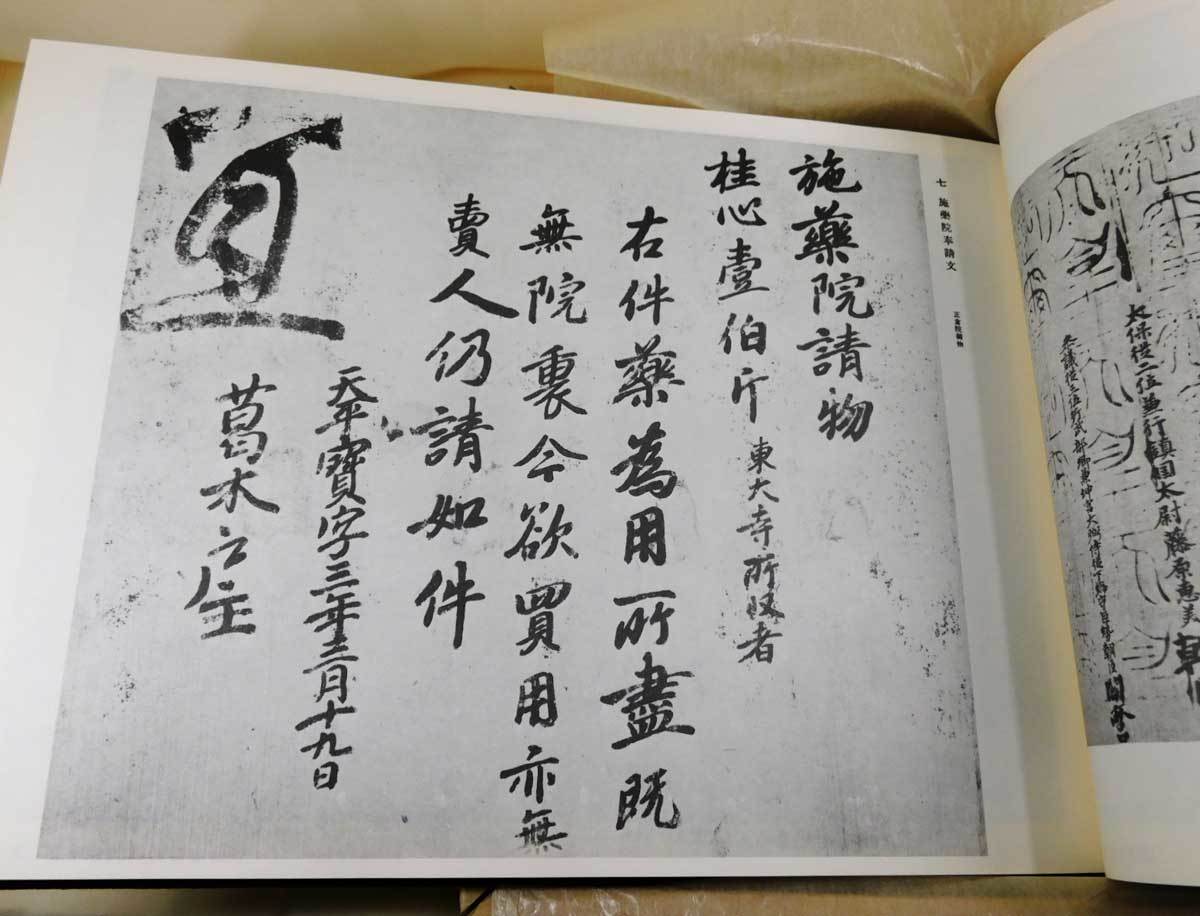 太保從二位兼行鎮國太尉藤原惠美朝
參議從三位行武部卿兼坤宮大弼侍從下総守巨勢朝臣關麻呂
七 施藥院奉請文 正倉院御物
施藥院請物
桂心壹伯斤 東大寺所収者
右件藥為用所盡既
無院裏今欲買用亦無
賣人仍請如件
天平寶字三年三月十九日
葛木戸主
宜